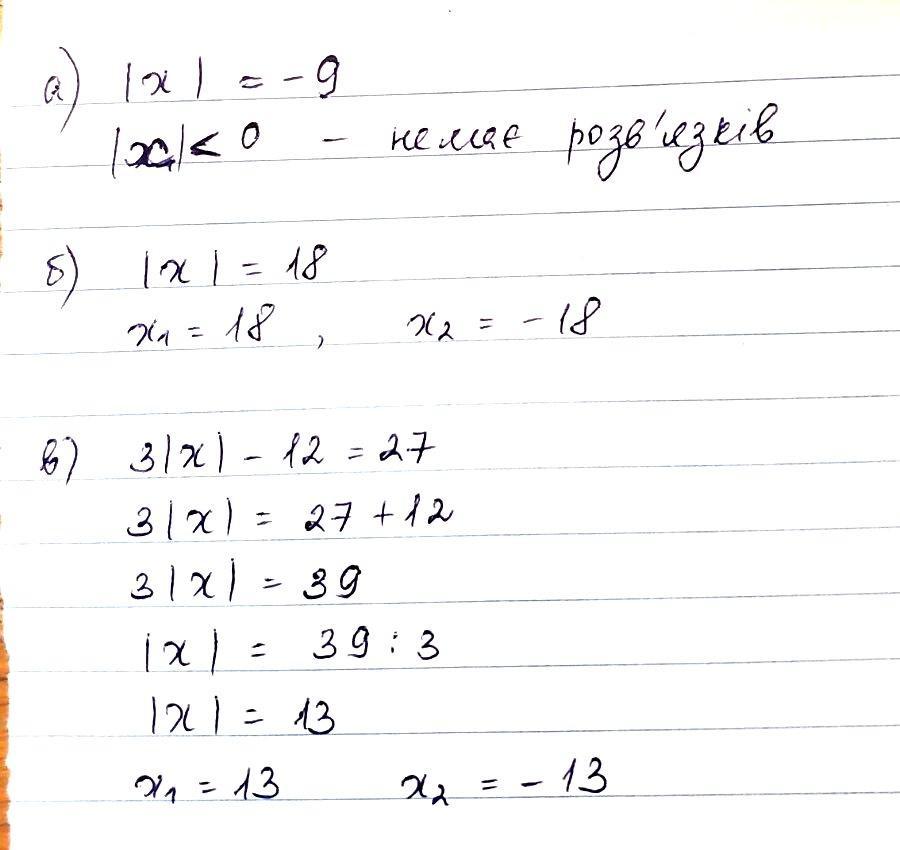 а) |x| = -9
|x|< 0 - немає розв'язків
б) |x| = 18
x₁ = 18 , x₂ = -18
в) 3|x| - 12 = 27
3|x| = 27 + 12
3|x| = 39
|x| = 39 : 3
|x| = 13
x₁ = 13 x₂ = -13